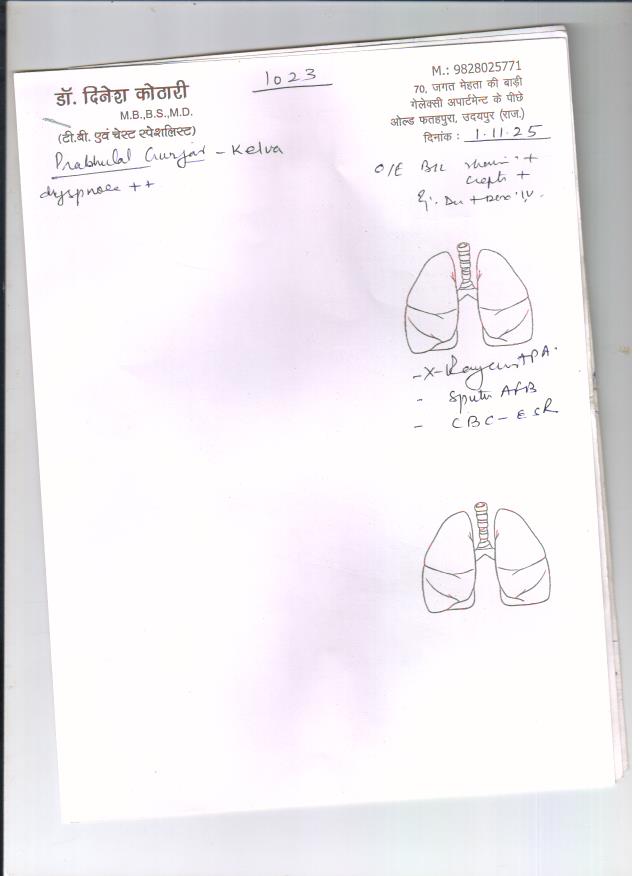 1023
डॉ. दिनेश कोठारी
M.B.,B.S.,M.D.
(टी.बी. एवं चेस्ट स्पेशलिस्ट)
M.: 9828025771
70, जगत मेहता की बाड़ी
गेलेक्सी अपार्टमेन्ट के पीछे
ओल्ड फतहपुरा, उदयपुर (राज.)
दिनांक : 1.11.25
Prabhulal Gurjar - Kelva
dyspnoea ++
O/E B/L +
crepts +
- X-Ray PA.
- Sputm AFB
- CBC - ESR